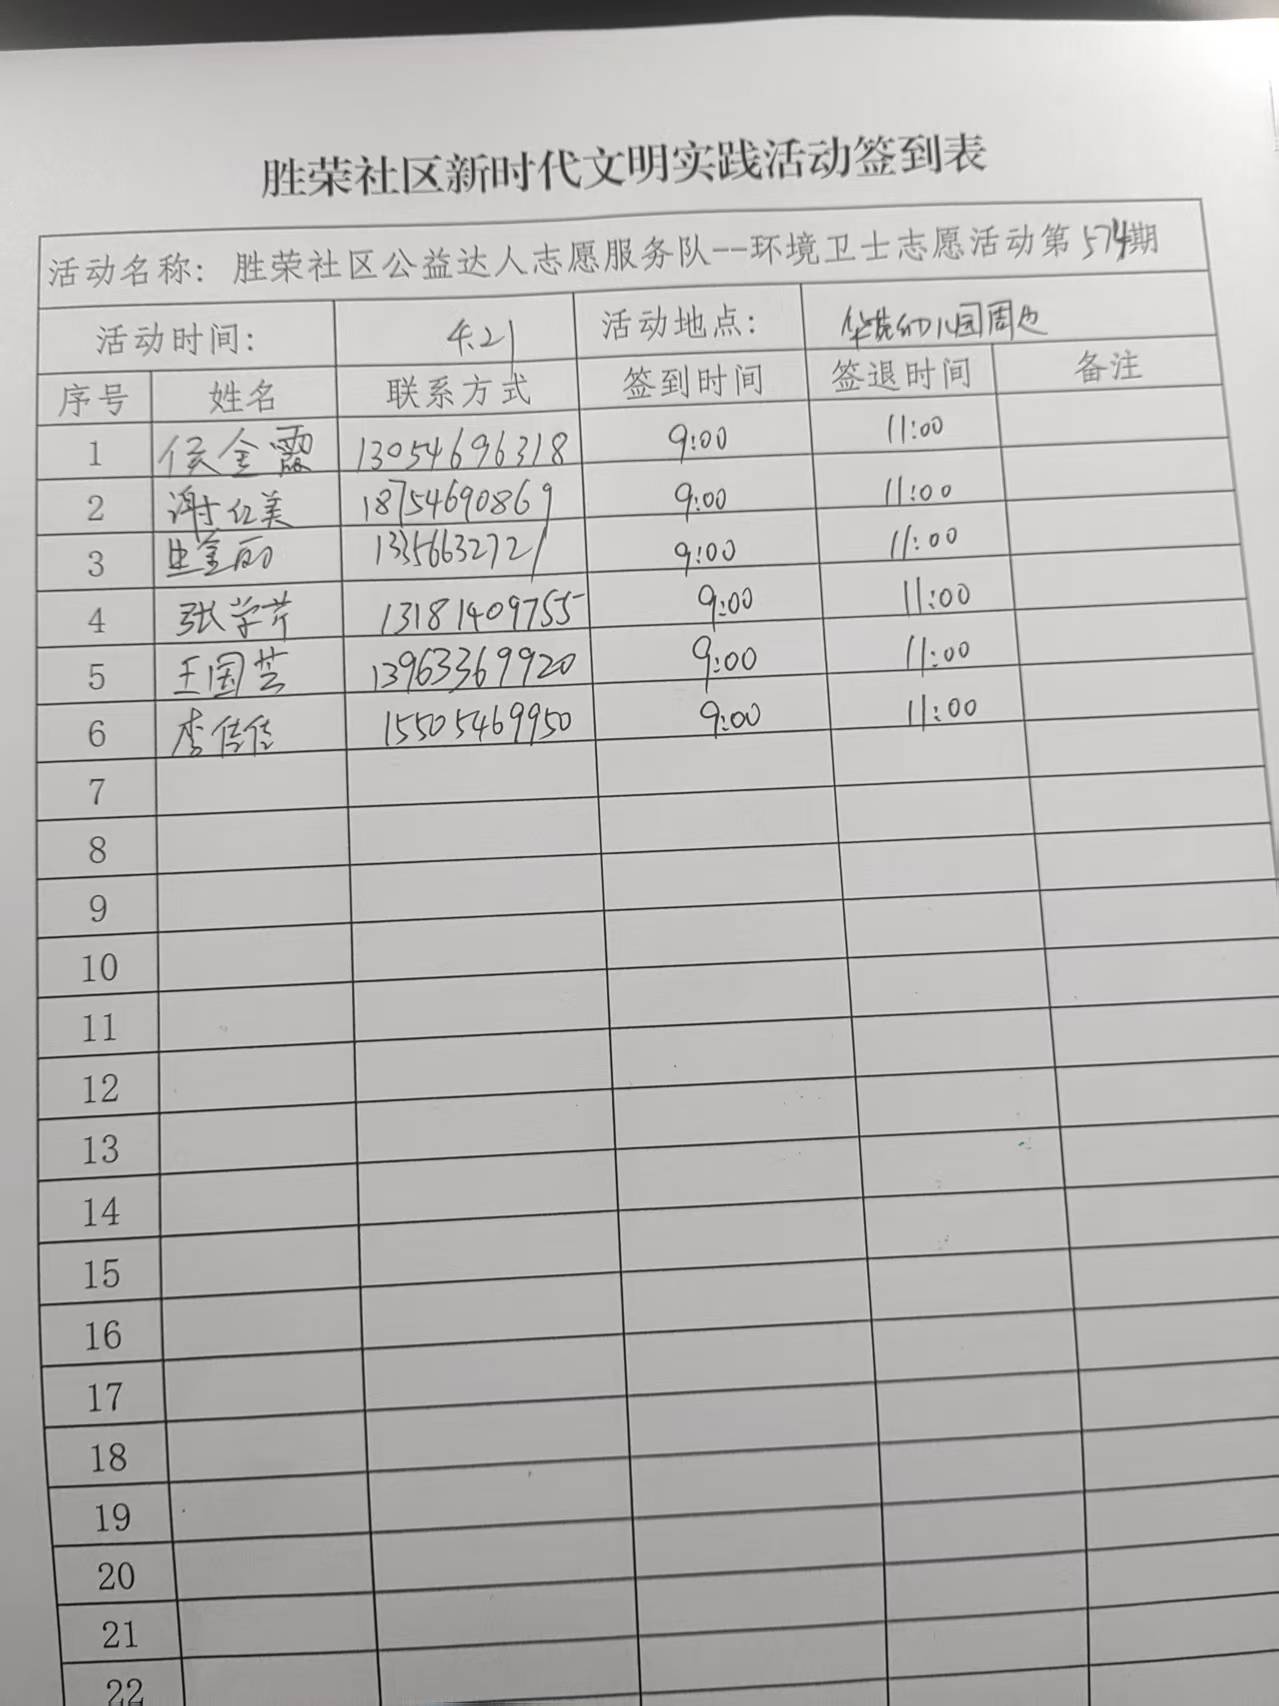 胜荣社区新时代文明实践活动签到表
活动名称：胜荣社区公益达人志愿服务队--环境卫士志愿活动第574期
活动时间： 4.21 活动地点： 华苑幼儿园周边
序号 姓名 联系方式 签到时间 签退时间 备注
1 侯金霞 13054696318 9:00 11:00
2 谢红美 18754690869 9:00 11:00
3 金丽 13356632721 9:00 11:00
4 张学芹 13181409755 9:00 11:00
5 王国芸 13963369920 9:00 11:00
6 李佳佳 15505469950 9:00 11:00
7
8
9
10
11
12
13
14
15
16
17
18
19
20
21
22